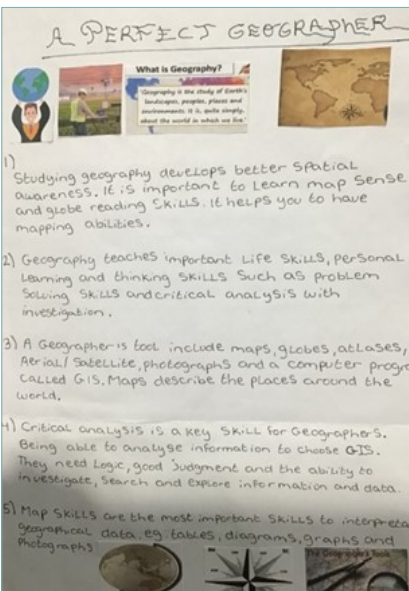 A PERFECT GEOGRAPHER
What is Geography?
'Geography is the study of Earth's
landscapes, peoples, places and
environments. It is, quite simply,
about the world in which we live'
1)
Studying geography develops better spatial
awareness. It is important to learn map sense
and globe reading skills. It helps you to have
mapping abilities.
2) Geography teaches important life skills, personal
learning and thinking skills such as problem
solving skills and critical analysis with
investigation.
3) A Geographer is tool include maps, globes, atlases,
Aerial/Satellite, photographs and a computer progr
called GIS. Maps describe the places around the
world.
4) Critical analysis is a key skill for Geographers.
Being able to analyse information to choose GIS.
They need logic, good judgment and the ability to
investigate, search and explore information and data.
5) Map skills are the most important skills to interpreta
geographical data. eg tables, diagrams, graphs and
Photographs
The Geographer's Tools